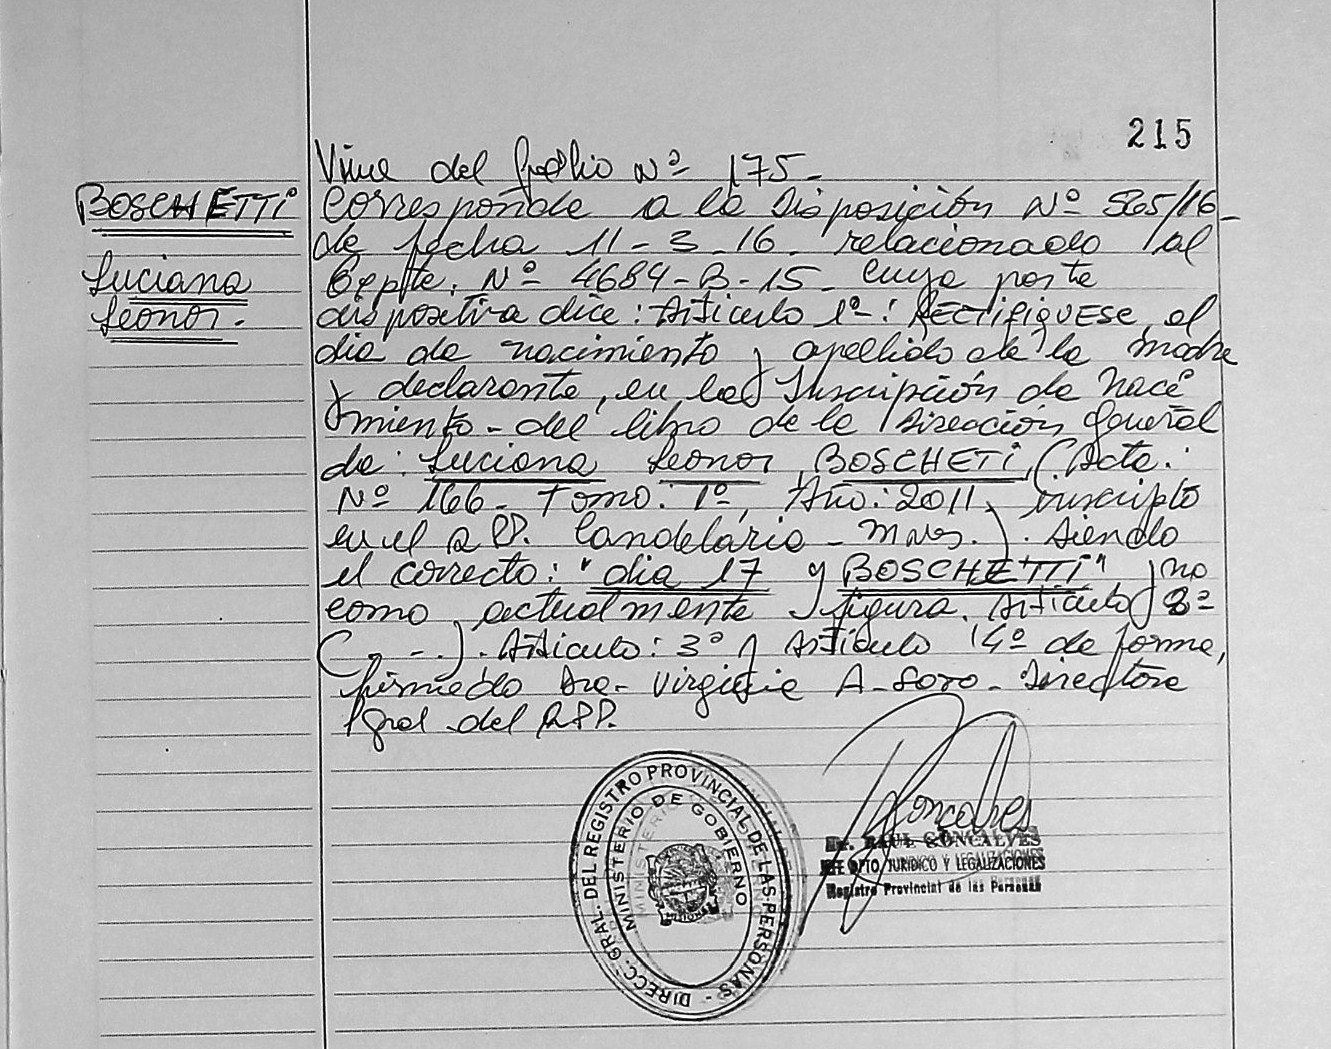 215
BOSCHETTI
Luciana
Leonor.
Viene del folio Nº 175-
Corresponde a la Disposición Nº 565/16-
de fecha 11-3-16- relacionado al
Expte. Nº 4684-B-15- cuya parte
dispositiva dice: Artículo 1º: RECTIFIQUESE, el
dia de nacimiento y apellido de la madre
y declarante, en la Inscripción de Naci
miento- del libro de la Dirección General
de: Luciana Leonor BOSCHETI, (Acta:
Nº 166- Tomo: 1º, Año: 2011, inscripto
en el RPP. Candelaria- Mnes.). siendo
el correcto: "dia 17 y BOSCHETTI" y no
como actualmente figura. Artículo 2º
(...). Artículo: 3º y Artículo 4º de forma,
firmado Dra- Virginia A- Soto- Directora
Gral del RPP.
DIRECC. GRAL. DEL REGISTRO PROVINCIAL DE LAS PERSONAS -
MINISTERIO DE GOBIERNO
MISIONES
Goncalves
Dr. RAUL GONCALVES
JEFE DPTO. JURIDICO Y LEGALIZACIONES
Registro Provincial de las Personas